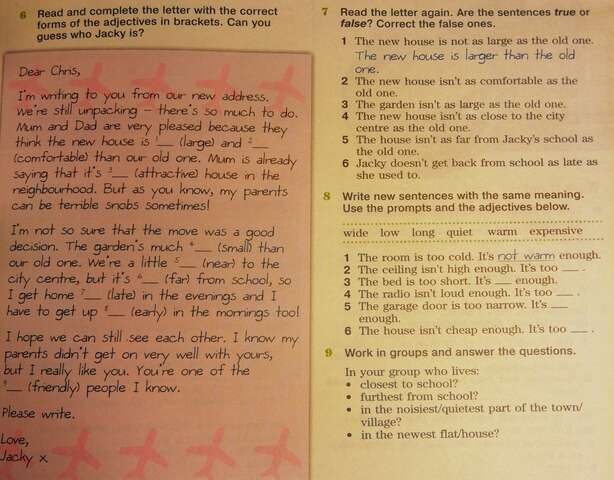 6 Read and complete the letter with the correct
forms of the adjectives in brackets. Can you
guess who Jacky is?
Dear Chris,
I'm writing to you from our new address.
We're still unpacking – there's so much to do.
Mum and Dad are very pleased because they
think the new house is 1__ (large) and 2__
(comfortable) than our old one. Mum is already
saying that it's 3__ (attractive) house in the
neighbourhood. But as you know, my parents
can be terrible snobs sometimes!
I'm not so sure that the move was a good
decision. The garden's much 4__ (small) than
our old one. We're a little 5__ (near) to the
city centre, but it's 6__ (far) from school, so
I get home 7__ (late) in the evenings and I
have to get up 8__ (early) in the mornings too!
I hope we can still see each other. I know my
parents didn't get on very well with yours,
but I really like you. You're one of the
9__ (friendly) people I know.
Please write.
Love,
Jacky x
7 Read the letter again. Are the sentences true or
false? Correct the false ones.
1 The new house is not as large as the old one.
The new house is larger than the old
one.
2 The new house isn't as comfortable as the
old one.
3 The garden isn't as large as the old one.
4 The new house isn't as close to the city
centre as the old one.
5 The house isn't as far from Jacky's school as
the old one.
6 Jacky doesn't get back from school as late as
she used to.
8 Write new sentences with the same meaning.
Use the prompts and the adjectives below.
wide low long quiet warm expensive
1 The room is too cold. It's not warm enough.
2 The ceiling isn't high enough. It's too __ .
3 The bed is too short. It's __ enough.
4 The radio isn't loud enough. It's too __ .
5 The garage door is too narrow. It's __
enough.
6 The house isn't cheap enough. It's too __ .
9 Work in groups and answer the questions.
In your group who lives:
• closest to school?
• furthest from school?
• in the noisiest/quietest part of the town/
village?
• in the newest flat/house?